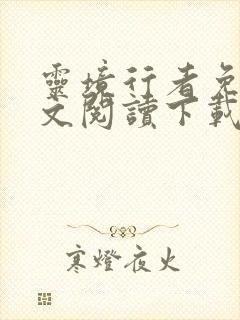 靈境行者免
文閱讀下載
寒燈夜火